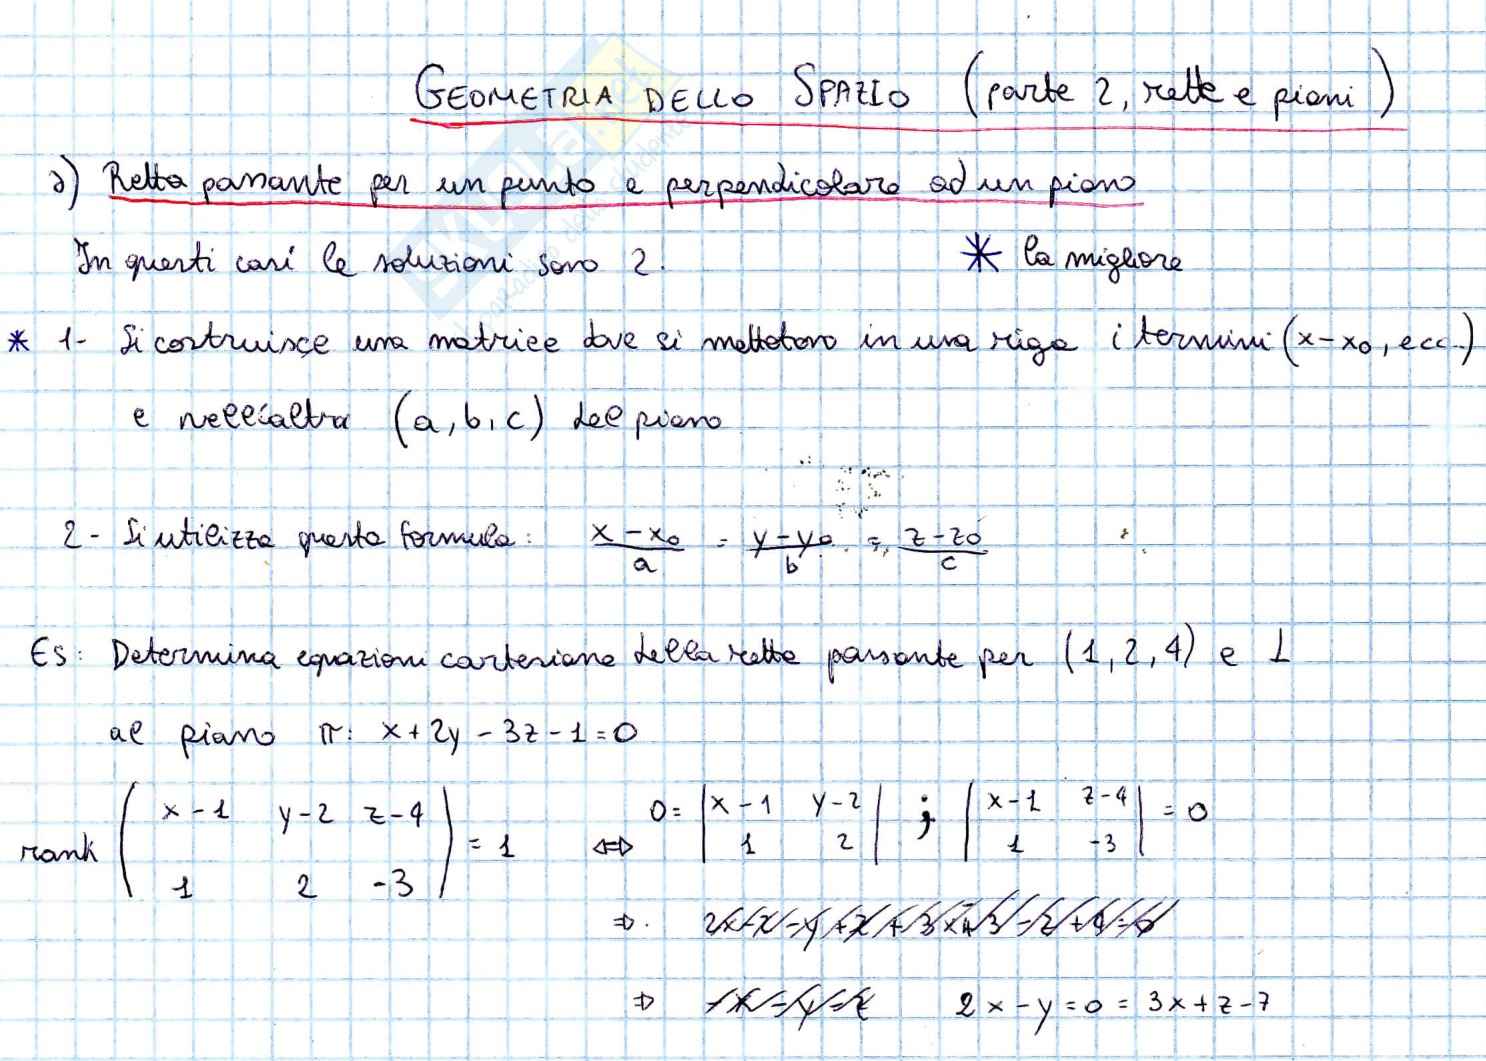 GEOMETRIA DELLO SPAZIO (parte 2, rette e piani)
a) Retta passante per un punto e perpendicolare ad un piano
In questi casi le soluzioni sono 2. * la migliore
* 1- Si costruisce una matrice dove si mettotono in una riga i termini (x-x₀, ecc..)
e nell'altra (a, b, c) del piano
2- Si utilizza questa formula: (x-x₀)/a = (y-y₀)/b = (z-z₀)/c
Es: Determina equazioni cartesiane della retta passante per (1,2,4) e ⊥
al piano π: x+2y-3z-1=0
rank ( x-1 y-2 z-4 ; 1 2 -3 ) = 1 ⇔ 0 = | x-1 y-2 ; 1 2 | ; | x-1 z-4 ; 1 -3 | = 0
⇒.
⇒ 2x-y=0=3x+z-7